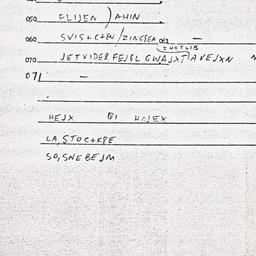 050 FLIJEN) AHIN
060 SVIS+C+EN/ZINGSEA 061 —
2HOTLIB
070 JETVIDERFEJSL GWAJXT)AVEJXN
071 —
HEJX OI HOJEX
LA, STOC+KPE
SO, SNEBEJM